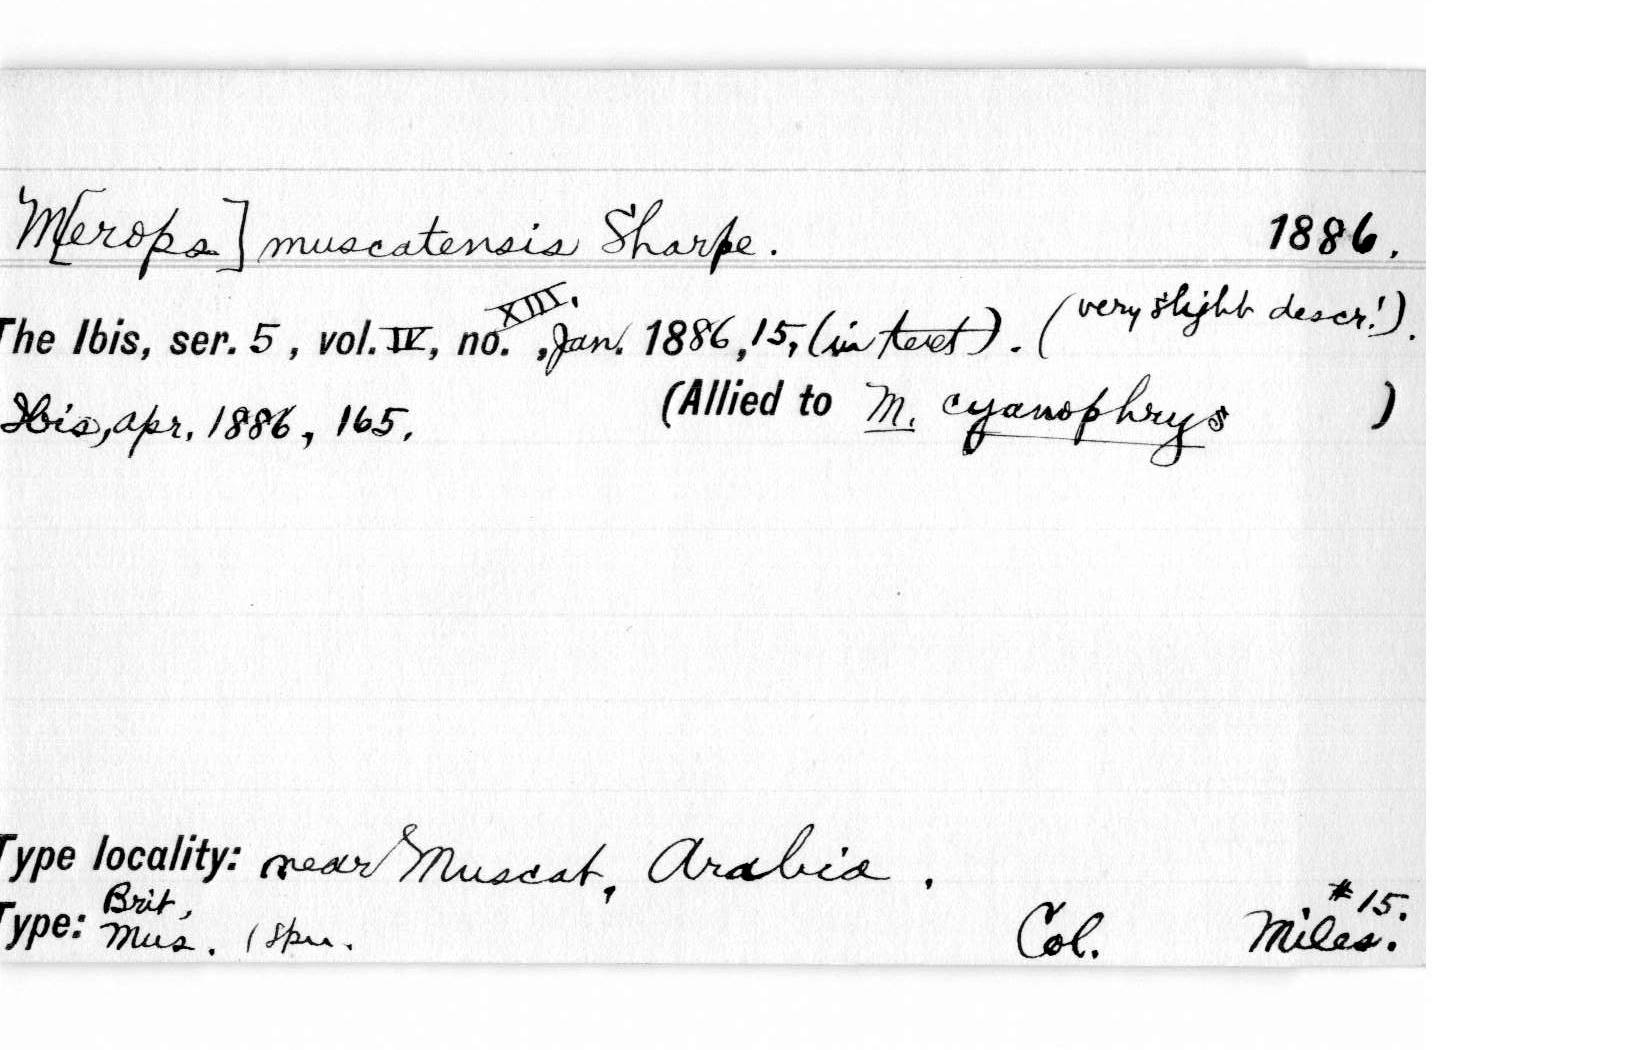 M[erops] muscatensis Sharpe. 1886.
The Ibis, ser. 5, vol. IV, no. XIII., Jan. 1886, 15, (in text). (very slight descr!).
Ibis, Apr. 1886, 165. (Allied to M. cyanophrys )
Type locality: near Muscat, Arabia.
Type: Brit. Mus. 1 spn. Col. Miles. #15.